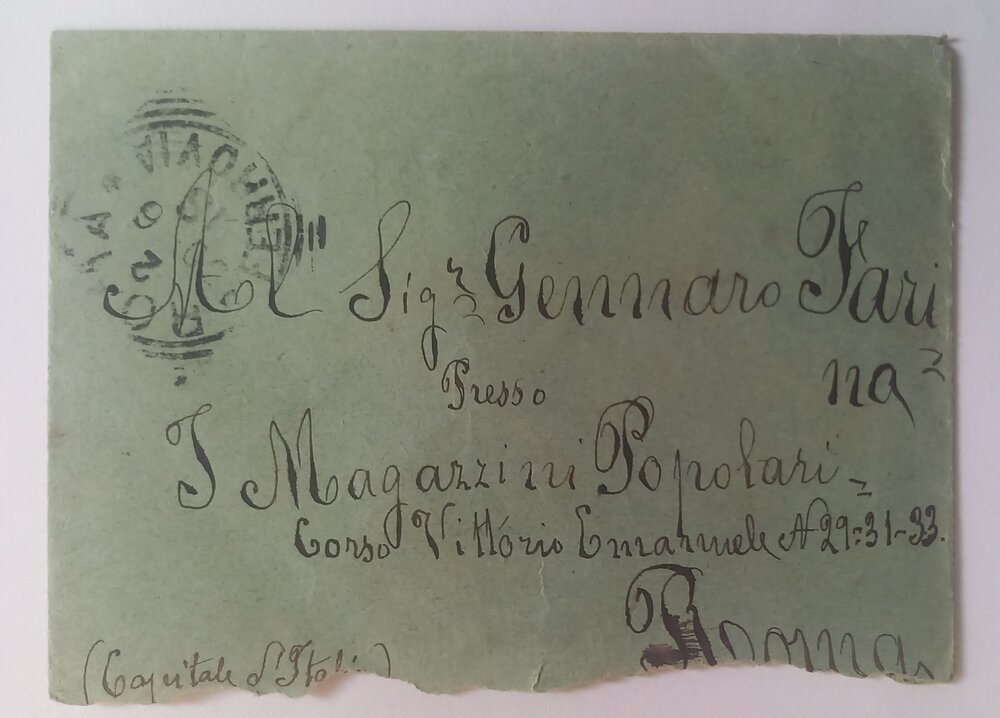 Al Sigr Gennaro Fari
na
Presso
I Magazzini Popolari
Corso Vittorio Emanuele N 29=31-33.
Roma
(Capitale d'Itali )